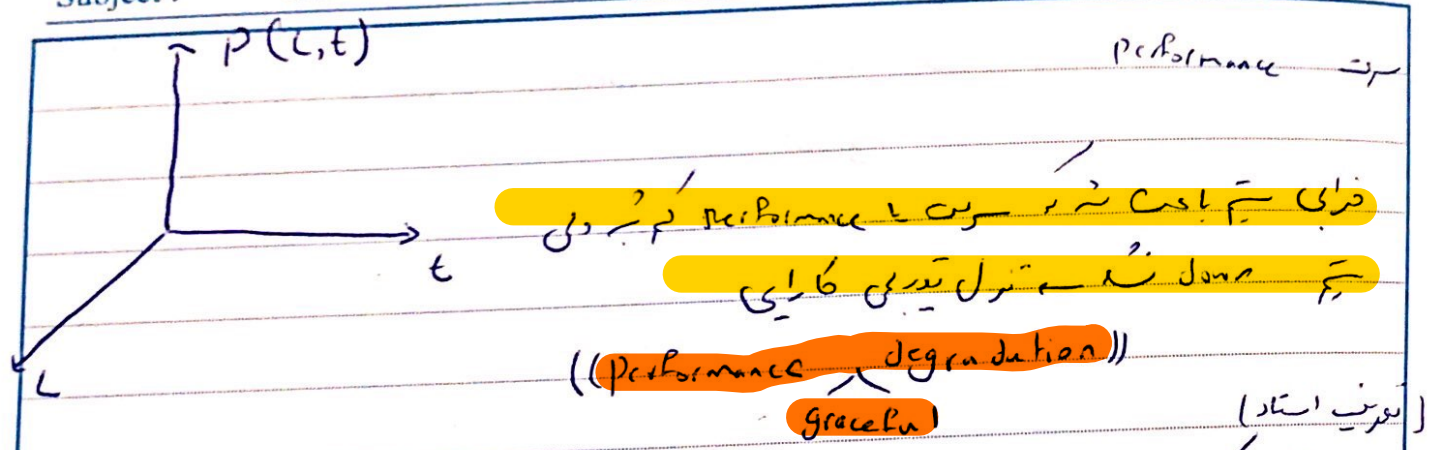 Subject :
P(L,t)
سرعت Performance
خرابی سیستم باعث شد که سرعت یا Performance کم شود ولی
t
سیستم down نشد ← تنزل تدریجی کارایی
L
((Performance degradation))
graceful
(تعریف استاد)